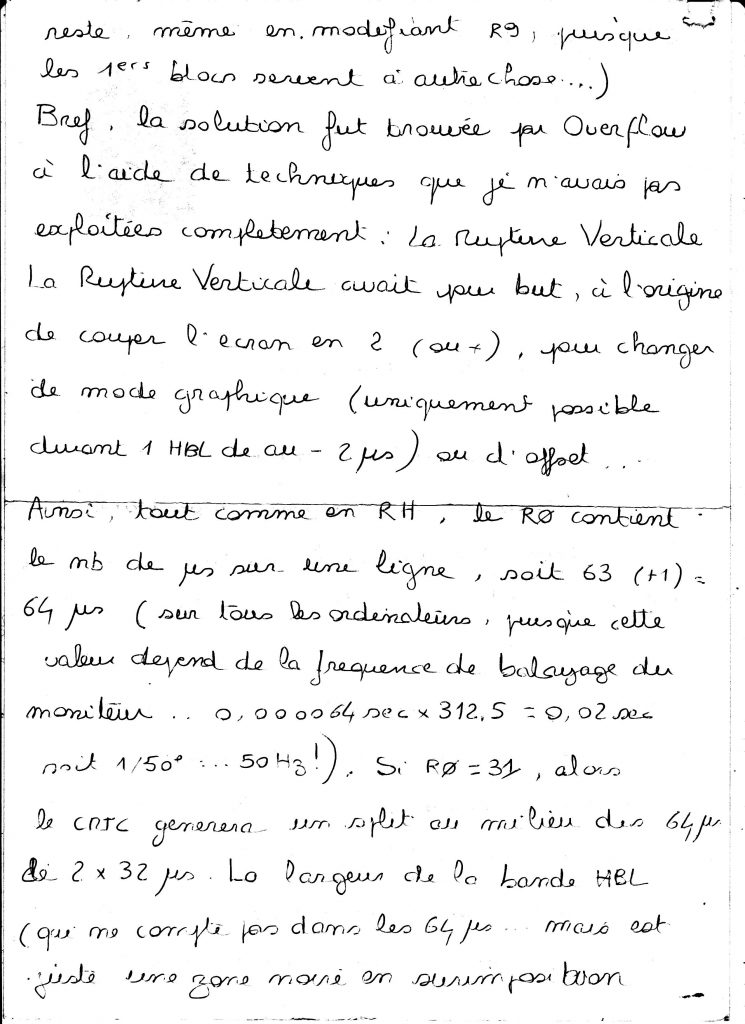 reste, même en modefiant R9, puisque
les 1ers blocs servent à autre chose...)
Bref, la solution fut trouvée par Overflow
à l'aide de techniques que je n'avais pas
exploitées completement : La Rupture Verticale
La Rupture Verticale avait pour but, à l'origine
de couper l'ecran en 2 (ou +), pour changer
de mode graphique (uniquement possible
durant 1 HBL de au - 2 µs) ou d'offset ...
Ainsi, tout comme en RH, le RØ contient
le nb de µs sur une ligne, soit 63 (+1) =
64 µs (sur tous les ordinateurs, puisque cette
valeur depend de la frequence de balayage du
moniteur .. 0,000064 sec x 312.5 = 0,02 sec
soit 1/50° ... 50 Hz!). Si RØ = 31, alors
le CRTC generera un split au milieu des 64 µs
de 2 x 32 µs. La largeur de la bande HBL
(qui ne compte pas dans les 64 µs ... mais est
juste une zone noire en surimposition